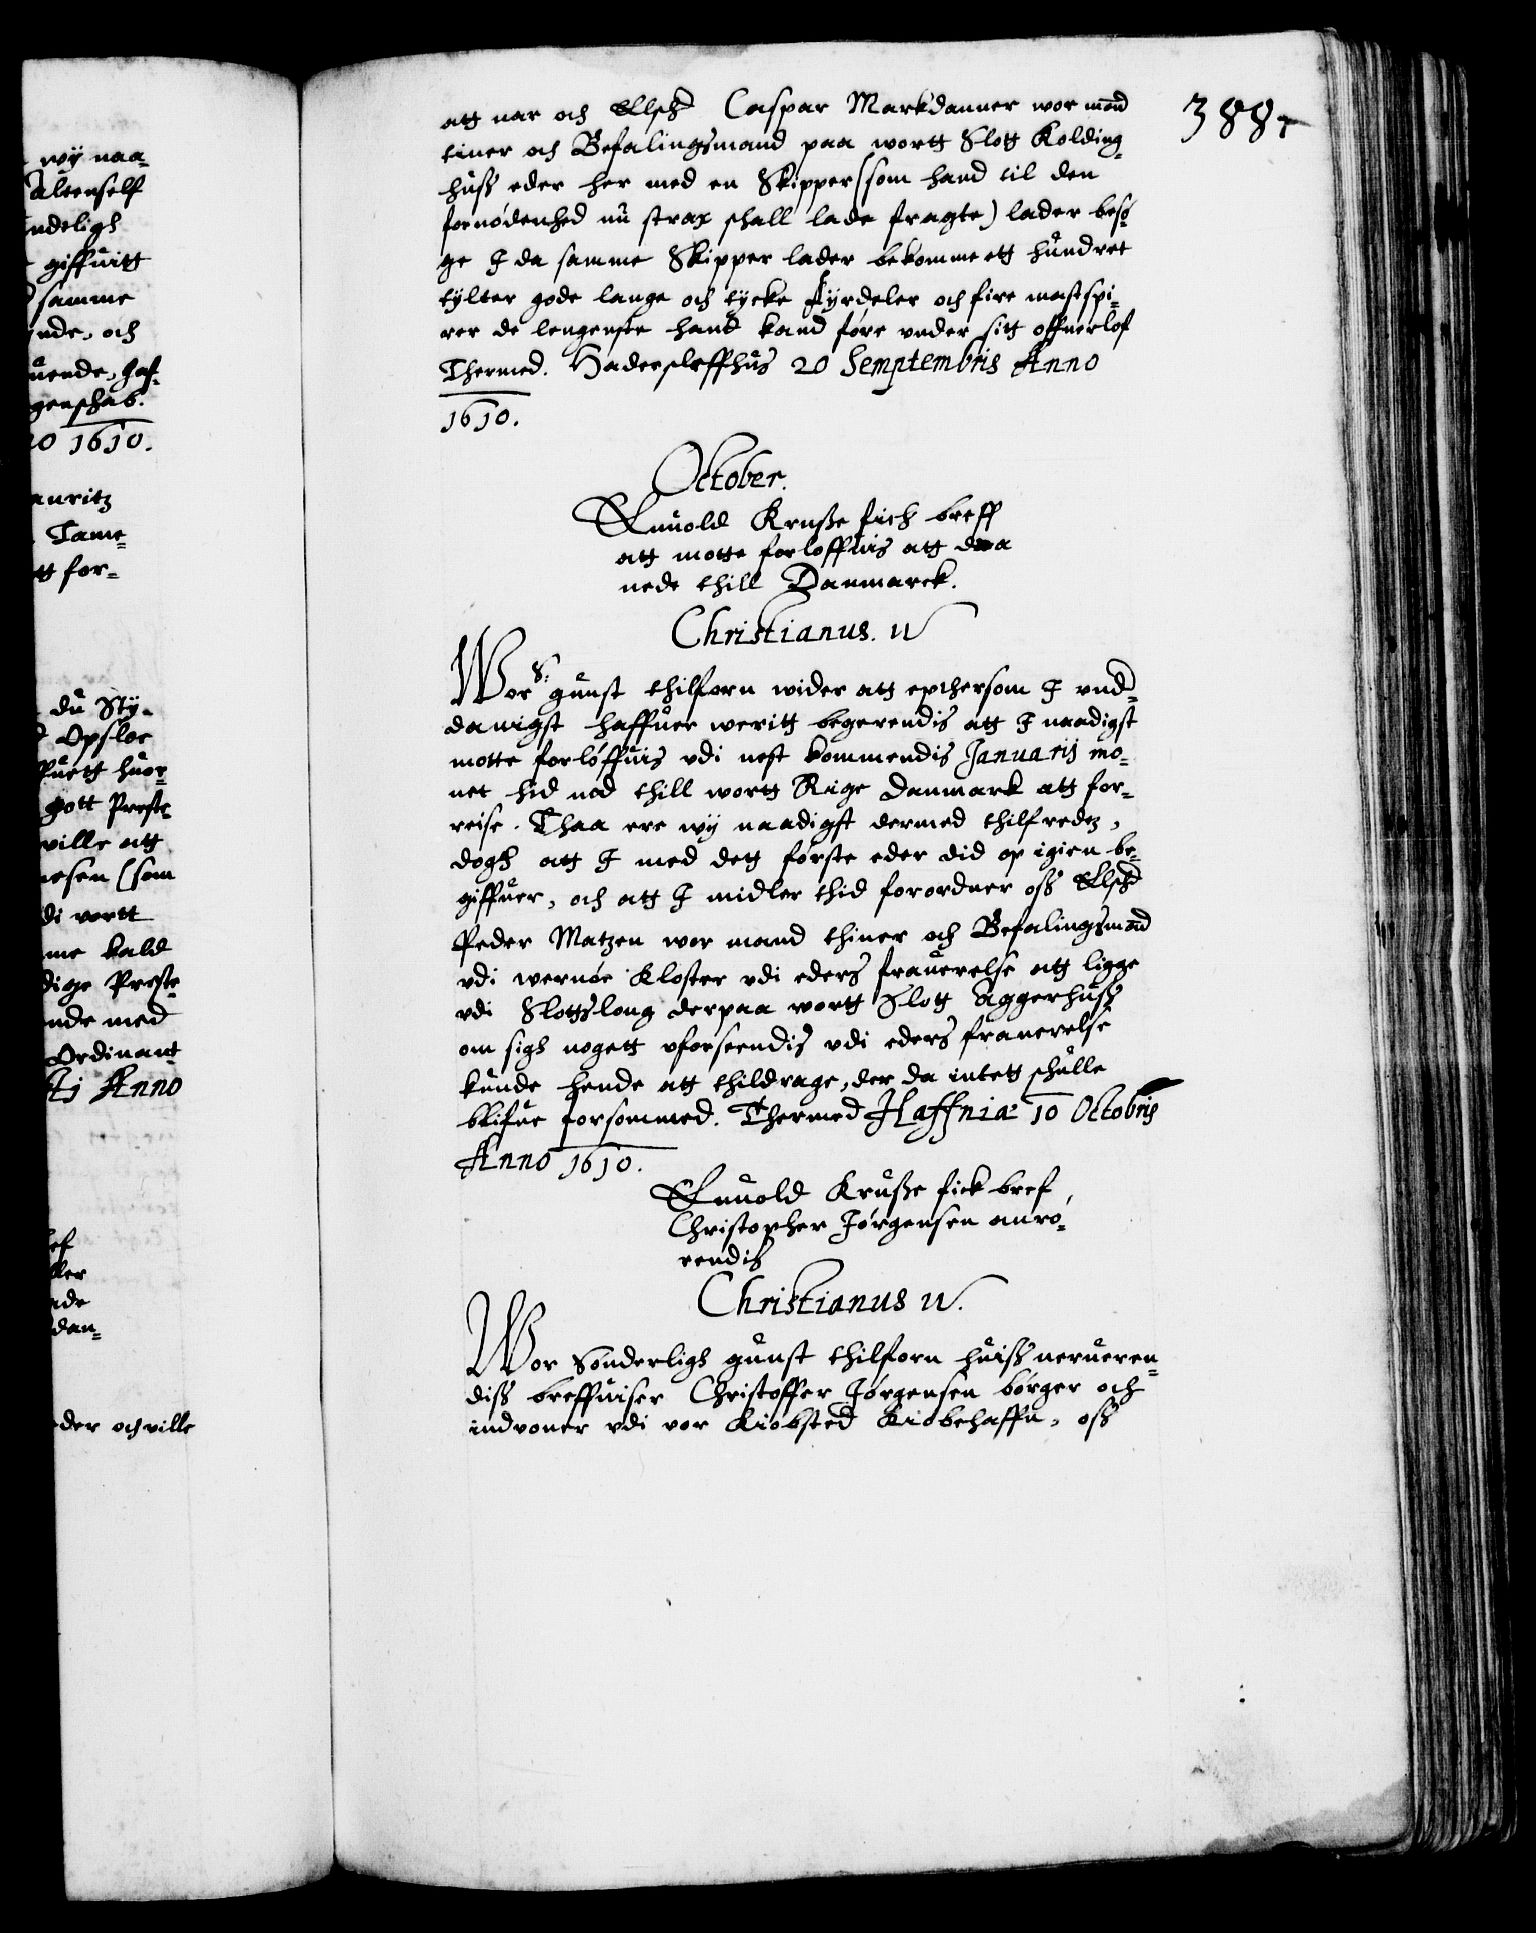 wij naa-
Altenself
ndeligh
giffuitt
samme
nde, och
uende, haf-
genschab.
1610.
auritz
Tame-
tt for-
du Stÿ-
Opsloe
huor
gott Preste
ville att
nesen (som
di vortt
me kald
dige Preste-
nde med
Ordinant
Anno
ef
ker
nde
dan-
eder och ville
388
att nar och Elsche Caspar Markdanner wor mand
tiner och Befalingsmand paa wortt Slott Kolding-
huss eder her med en Skipper (som hand til den
fornødenhed nu strax schall lade fragte) lader besø-
ge I da samme Skipper lader bekomme ett hundret
tylter gode lange och tycke fyrdeler och fire mastspi-
rer de lengenste hand kand føre under sitt offuerlof
Thermed. Haderschleffhus 20 Semptembris Anno
1610.
October.
Enuold Kruße fich breff
att motte forloffuis att draa
nede thill Danmarck.
Christianus. IV
Wor S: gunst thilforn wider att epthersom I und-
danigst haffuer weritt begerendis att I naadigst
motte forløffuis udi nest kommendis Januarij mo-
net hid ned thill wortt Rige Danmark att for-
reise. Thaa ere wij naadigst dermed thilfredtz,
dogh att I med dett første eder did op igien be-
giffuer, och att I midler thid forordner oss Elsche
Peder Matzen wor mand thiner och Befalingsmand
udi wernøe Kloster udi eders frauerelse att ligge
udi Slotzlong derpaa wortt Slott Aggerhuss
om sigh nogett uforseendis udi eders frauerelse
kunde hende att thildrage, der da intett schulle
blifue forsommed. Thermed Haffniæ 10 Octobris
Anno 1610.
Enuold Kruße fick bref
Christopher Jørgensen anrø-
rendis
Christianus IV.
Wor Sønderligh gunst thilforn huiss nerueren-
diss breffuiser Christoffer Jørgensen børger och
indvoner udi vor Kiøbsted Kiøbehaffn, oss